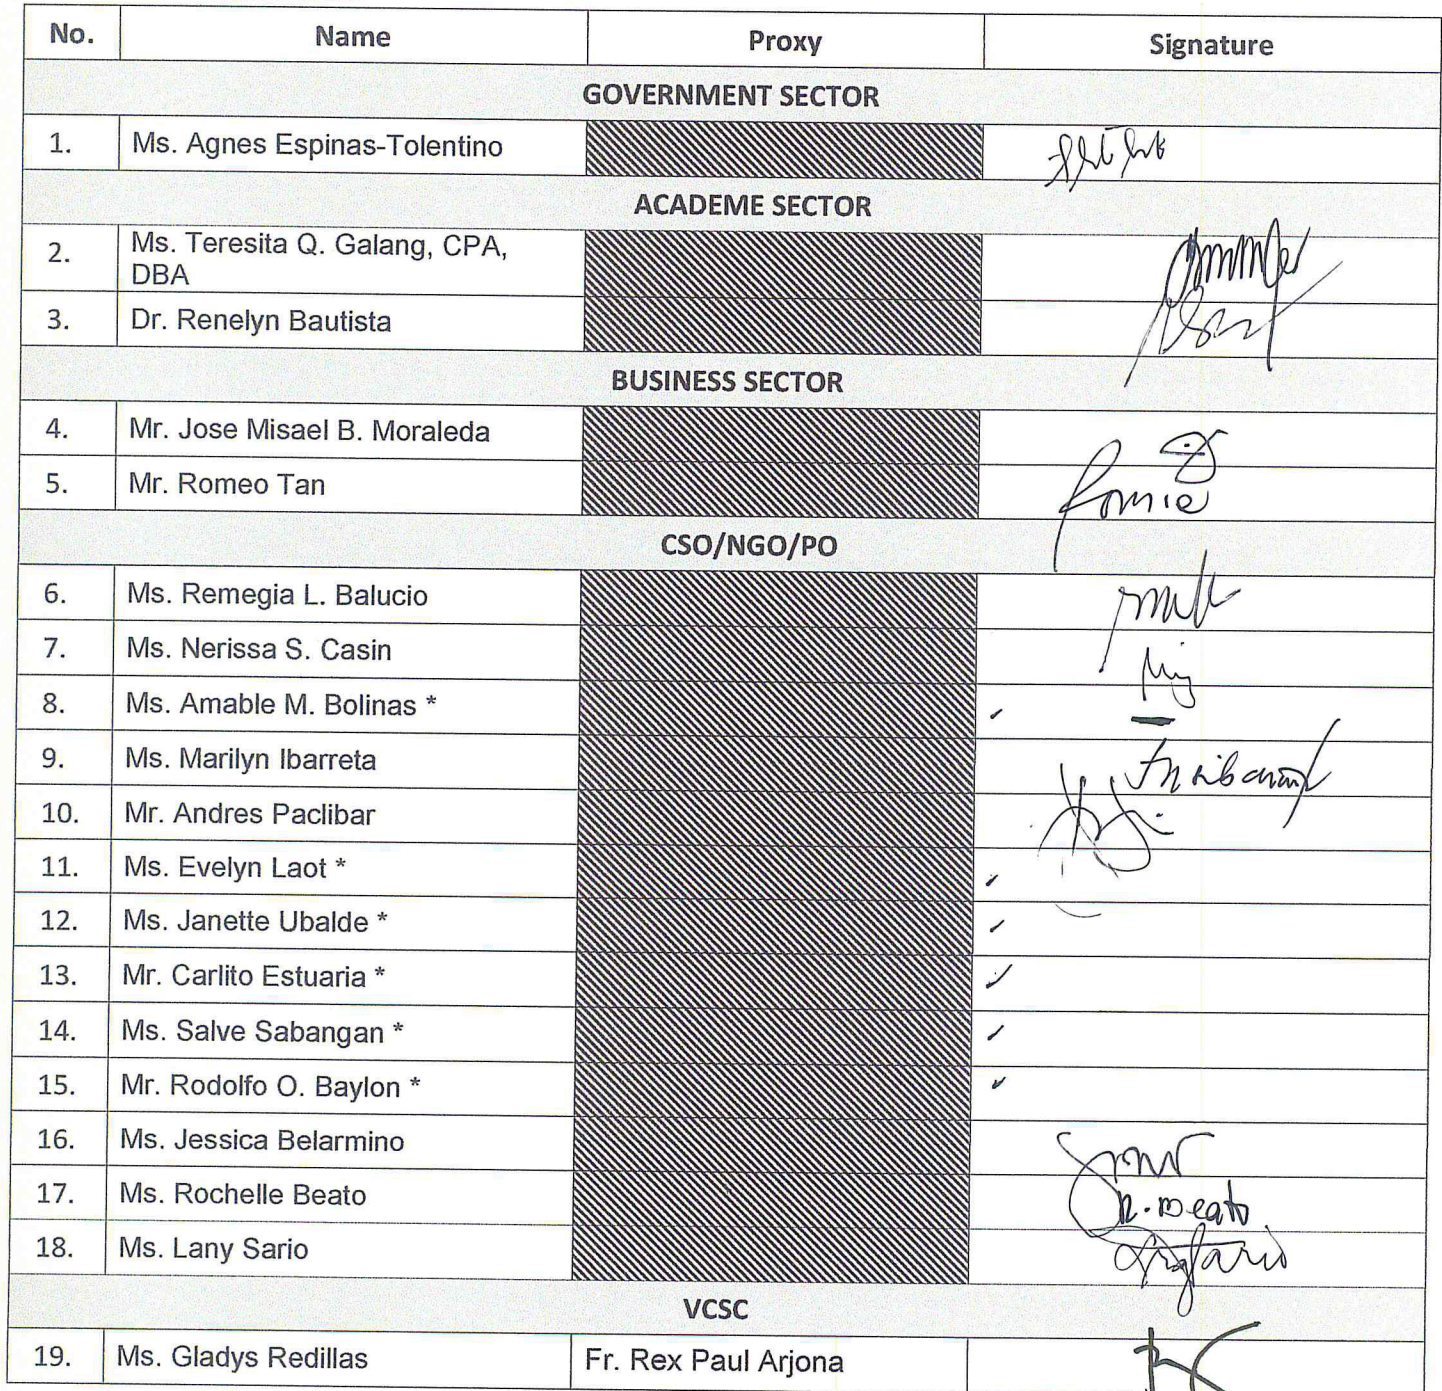 No. Name Proxy Signature
GOVERNMENT SECTOR
1. Ms. Agnes Espinas-Tolentino
ACADEME SECTOR
2. Ms. Teresita Q. Galang, CPA,
DBA
3. Dr. Renelyn Bautista
BUSINESS SECTOR
4. Mr. Jose Misael B. Moraleda
5. Mr. Romeo Tan
Romie
CSO/NGO/PO
6. Ms. Remegia L. Balucio
7. Ms. Nerissa S. Casin
8. Ms. Amable M. Bolinas *
9. Ms. Marilyn Ibarreta
10. Mr. Andres Paclibar
11. Ms. Evelyn Laot *
12. Ms. Janette Ubalde *
13. Mr. Carlito Estuaria *
14. Ms. Salve Sabangan *
15. Mr. Rodolfo O. Baylon *
16. Ms. Jessica Belarmino
17. Ms. Rochelle Beato R. Beato
18. Ms. Lany Sario
VCSC
19. Ms. Gladys Redillas Fr. Rex Paul Arjona